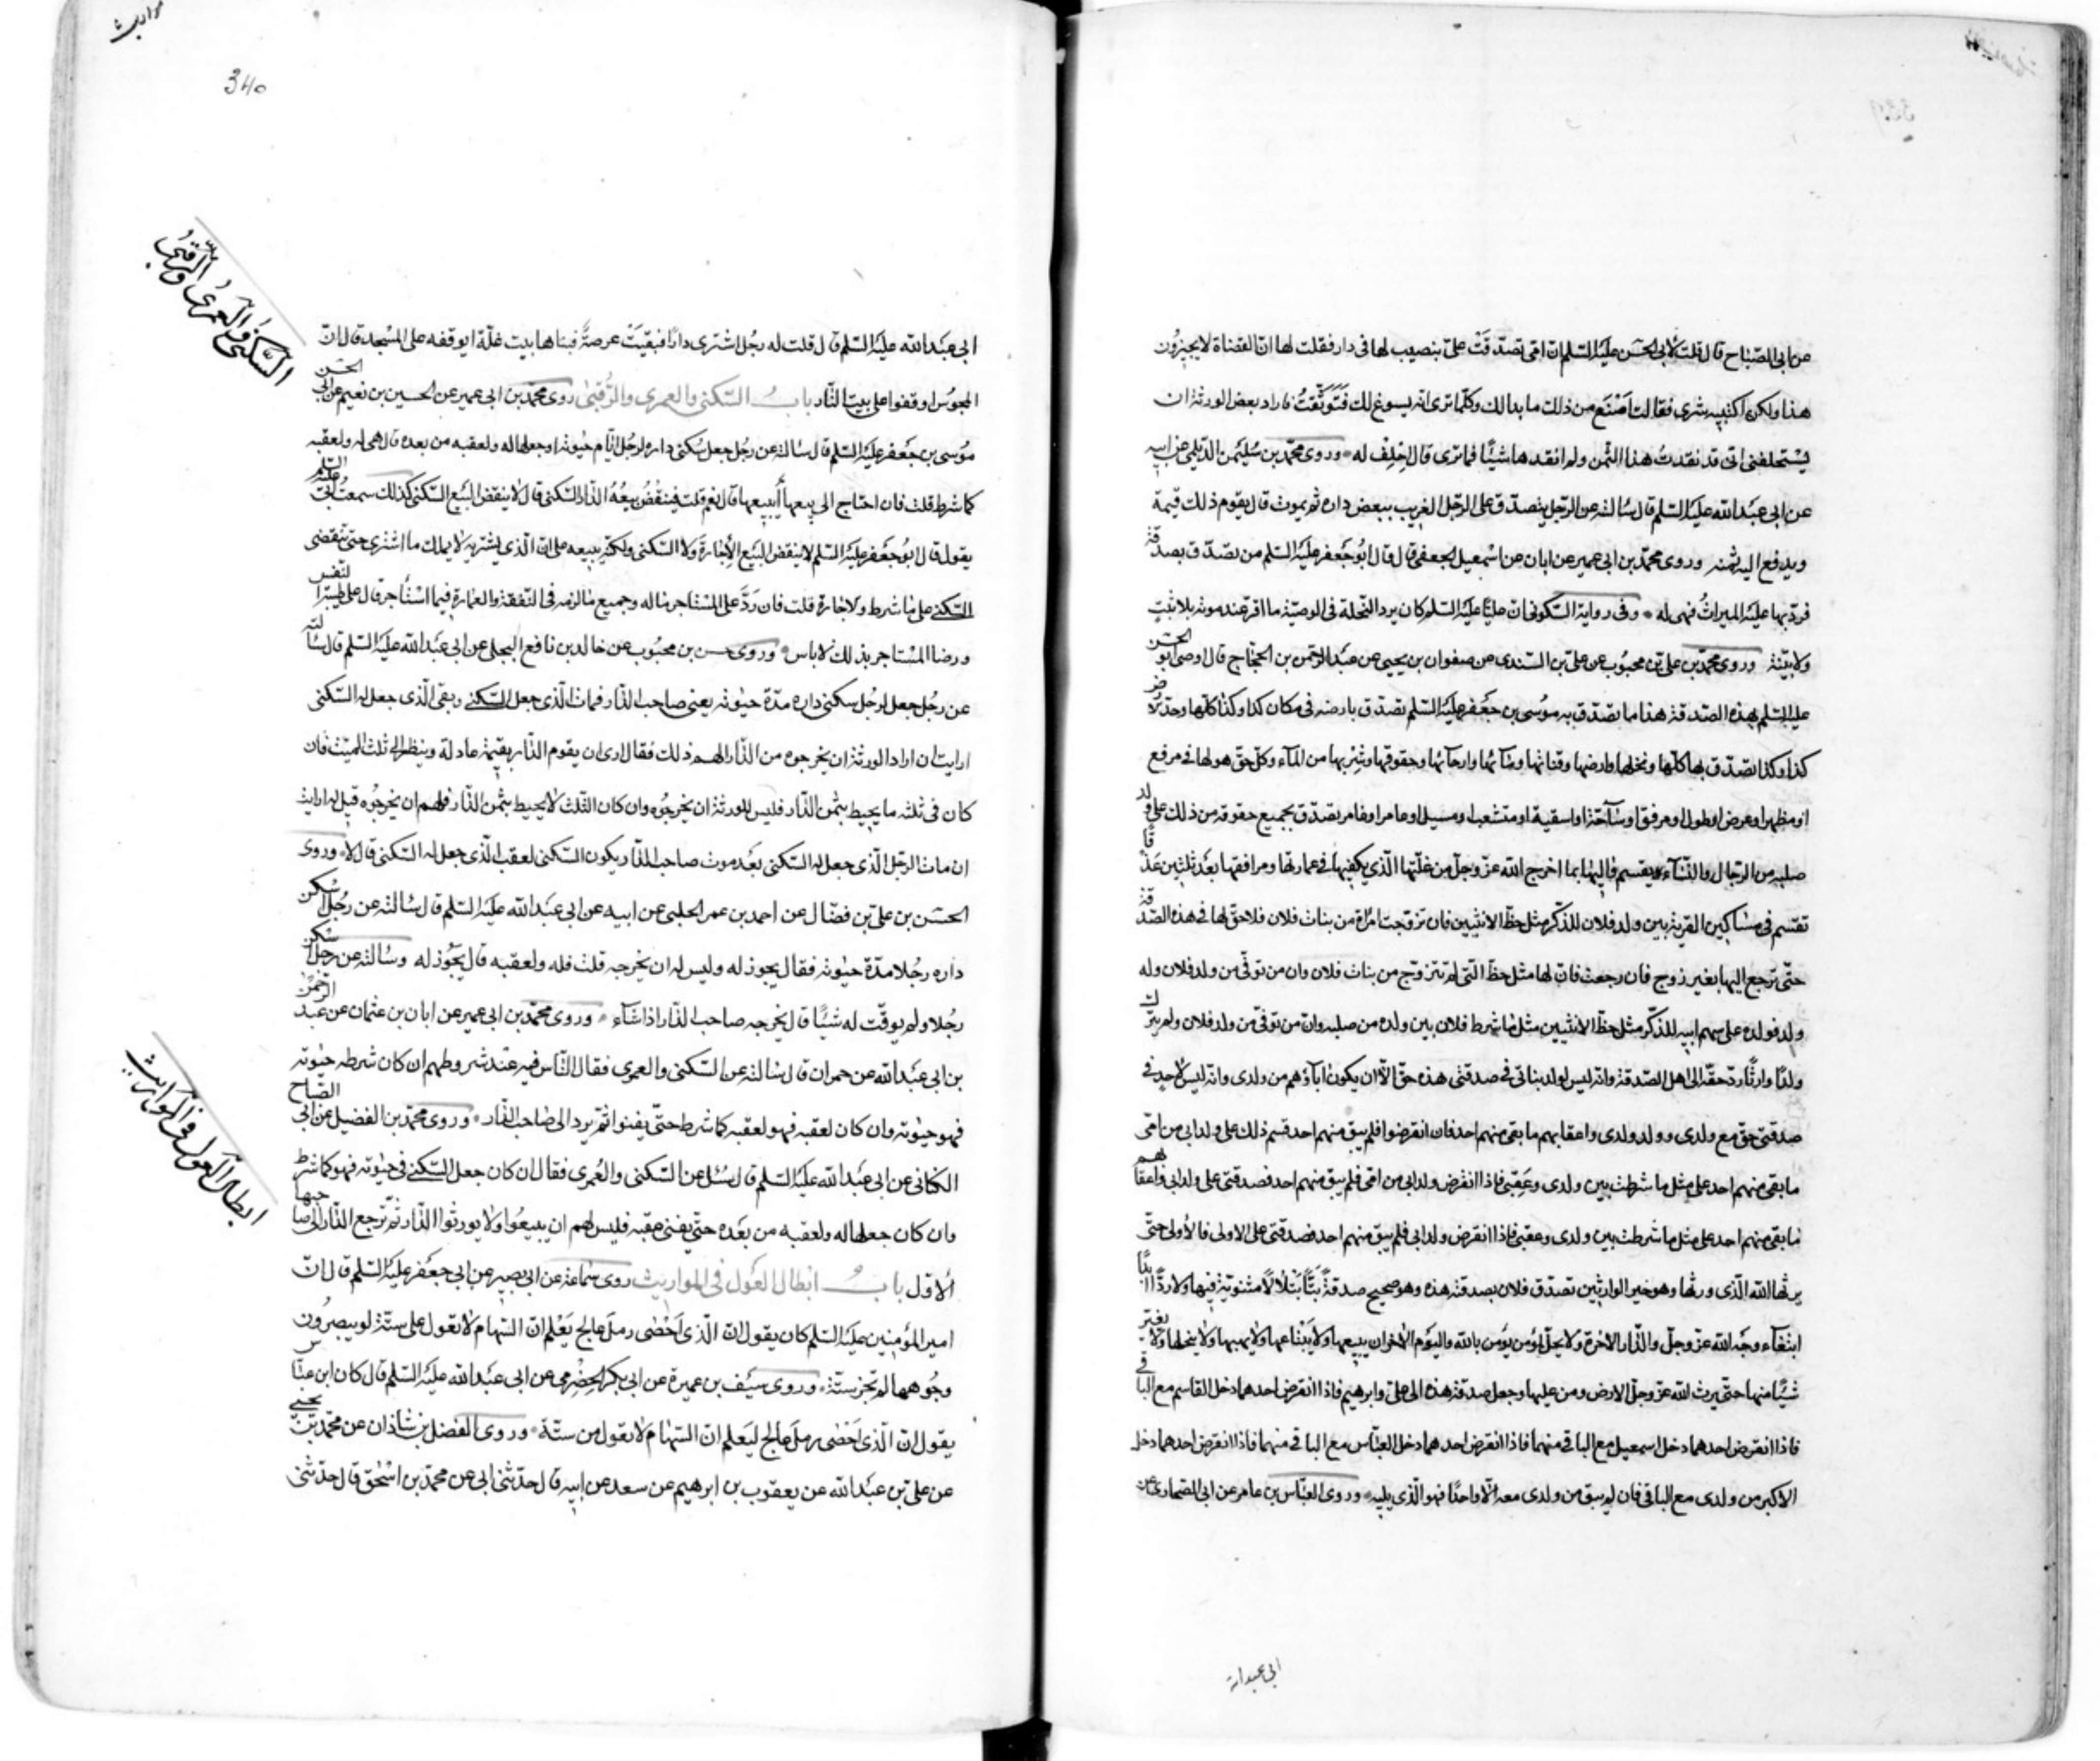 عن ابى الصّباح قال قلت لابى الحسن عليه السّلم ان امى تصدّقت علىّ بنصيب لها فى دار فقلت لها ان القضاة لا يجيزون
هذا ولكن اكتبيه شرى فقالت اصنع من ذلك ما بدا لك وكلّما ترى انه يسوغ لك فتوثّقت فاراد بعض الورثة ان
يستحلفنى انى قد نقدت هذا الثمن ولم انقدها شيئًا فما ترى قال احلف له وروى محمّد بن سليمن الديلمى عن ابيه
عن ابى عبد الله عليه السّلم قال سالته عن الرجل يتصدق على الرّجل الغريب ببعض داره ثم يموت قال يقوم ذلك قيمة
ويدفع اليه ثمنه وروى محمّد بن ابى عمير عن ابان عن اسمعيل الجعفى قال قال ابو جعفر عليه السّلم من تصدّق بصدقة
فردّها عليه الميراث فهى له وفى رواية السّكونى ان عليّا عليه السّلم كان يرد النحلة فى الوصيّة ما اقر عند موته بلا ثبت
ولا بيّنة وروى محمّد بن على بن محبوب عن على بن السّندى عن صفوان بن يحيى عن عبد الرّحمن بن الحجّاج قال اوصى ابو الحسن
عليه السّلم بهذه الصّدقة هذا ما تصدّق به موسى بن جعفر عليه السّلم تصدّق بارضه فى مكان كذا وكذا كلّها وحدّ ارض
كذا وكذا تصدّق بها كلّها ونخلها وارضها وقناتها ومائها وارحائها وحقوقها وشربها من الماء وكلّ حقّ هو لها فى مرفع
او مظهر او عرض او طول او مرفق او ساحة او اسقية او متشعب او مسيل او عامر او غامر تصدّق بجميع حقوقه من ذلك على ولد
صلبه من الرّجال والنّساء يقسم واليها بما اخرج الله عزّ وجلّ من غلّتها الّذى يكفيها فى عمارتها ومرافقها بعد ثلثين عذقًا
تقسّم فى مساكين القرية بين ولد فلان للذّكر مثل حظّ الانثيين فان تزوّجت امراة من بنات فلان فلا حقّ لها فى هذه الصّدقة
حتّى ترجع اليها بغير زوج فان رجعت فان لها مثل حظّ التى لم تتزوّج من بنات فلان وان من توفّى من ولد فلان وله
ولد فولده على سهم ابيه للذّكر مثل حظّ الانثيين مثل ما شرط فلان بين ولده من صلبه وان من توفّى من ولد فلان ولم يترك
ولدًا وارثًا ردّ حقّه الى اهل الصّدقة وانه ليس لولد بناتى فى صدقتى هذه حقّ الّا ان يكون اباؤهم من ولدى وانه ليس لاحد فى
صدقتى حقّ مع ولدى وولد ولدى واعقابهم ما بقى منهم احد فان انقرضوا فلم يبق منهم احد قسم ذلك على ولد ابى من امّى
ما بقى منهم احد على مثل ما شرطت بين ولدى وعقبى فاذا انقرض ولد ابى من امى فلم يبق منهم احد فصدقتى على ولد ابى واعقابهم
ما بقى منهم احد على مثل ما شرطت بين ولدى وعقبى فاذا انقرض ولد ابى فلم يبق منهم احد فصدقتى على الاولى فالاولى حتّى
يرثها الله الّذى ورثها وهو خير الوارثين تصدّق فلان بصدقته هذه وهو صحيح صدقةً بتًّا بتلًا لا مثنوية فيها ولا ردّ ابدًا
ابتغاء وجه الله عزّ وجلّ والدّار الاخرة ولا يحلّ لمؤمن يؤمن بالله واليوم الاخر ان يبيعها ولا يبتاعها ولا يهبها ولا ينحلها ولا يغير
شيئًا منها حتّى يرث الله عزّ وجلّ الارض ومن عليها وجعل صدقته هذه الى علىّ وابرهيم فاذا انقرض احدهما دخل القاسم مع الباقى
فاذا انقرض احدهما دخل اسمعيل مع الباقى منهما فاذا انقرض احدهما دخل العبّاس مع الباقى منهما فاذا انقرض احدهما دخل
الاكبر من ولدى مع الباقى فان لم يبق من ولدى معه الّا واحدًا فهو الّذى يليه وروى العبّاس بن عامر عن ابى الصّحارى عن
ابى عبد الله
مواريث
340
السّكنى والعمرى والرّقبى
ابى عبد الله عليه السّلم قال قلت له رجل اشترى دارًا فبقيت عرصةً فبناها بيت غلّة ايوقفه على المسجد قال انّ
المجوس اوقفوا على بيت النّار باب السّكنى والعمرى والرّقبى روى محمّد بن ابى عمير عن الحسين بن نعيم عن ابى الحسن
موسى بن جعفر عليه السّلم قال سالته عن رجل جعل سكنى داره لرجل ايّام حيوته او جعلها له ولعقبه من بعده قال هى له ولعقبه
كما شرط قلت فان احتاج الى بيعها أيبيعها قال نعم قلت فينقض بيعه الدّار السّكنى قال لا ينقض البيع السّكنى كذلك سمعت ابى عليه السّلم
يقول قال ابو جعفر عليه السّلم لا ينقض البيع الاجارة ولا السّكنى ولكنّه يبيعه على انّ الّذى يشتريه لا يملك ما اشترى حتّى تنقضى
السّكنى على ما شرط والاجارة قلت فان ردّ على المستاجر ماله وجميع ما لزمه فى النّفقة والعمارة فيما استأجر قال على طيبة النّفس
ورضا المستاجر بذلك لا باس وروى حسن بن محبوب عن خالد بن نافع البجلى عن ابى عبد الله عليه السّلم قال سالته
عن رجل جعل لرجل سكنى داره مدّة حيوته يعنى صاحب الدّار فمات الّذى جعل السّكنى وبقى الّذى جعل له السّكنى
ارايت ان اراد الورثة ان يخرجوه من الدّار الهم ذلك فقال ارى ان يقوم الدّار بقيمة عادلة وينظر الى ثلث الميّت فان
كان فى ثلثه ما يحيط بثمن الدّار فليس للورثة ان يخرجوه وان كان الثّلث لا يحيط بثمن الدّار فلهم ان يخرجوه قيل له ارايت
ان مات الرّجل الّذى جعل له السّكنى بعد موت صاحب الدّار يكون السّكنى لعقب الّذى جعل له السّكنى قال لا وروى
الحسن بن على بن فضّال عن احمد بن عمر الحلبى عن ابيه عن ابى عبد الله عليه السّلم قال سالته عن رجل اسكن
داره رجلا مدّة حيوته فقال يجوز له وليس له ان يخرجه قلت فله ولعقبه قال يجوز له وسالته عن رجل اسكن
رجلا ولم يوقّت له شيئًا قال يخرجه صاحب الدّار اذا شاء وروى محمّد بن ابى عمير عن ابان بن عثمان عن عبد الرّحمن
بن ابى عبد الله عن حمران قال سالته عن السّكنى والعمرى فقال النّاس فيه عند شروطهم ان كان شرطه حيوته
فهو حيوته وان كان لعقبه فهو لعقبه كما شرط حتّى يفنوا ثم يرد الى صاحب الدّار وروى محمّد بن الفضيل عن ابى الصّباح
الكنانى عن ابى عبد الله عليه السّلم قال سئل عن السّكنى والعمرى فقال ان كان جعل السّكنى فى حيوته فهو كما شرط
وان كان جعلها له ولعقبه من بعده حتّى يفنى عقبه فليس لهم ان يبيعوا ولا يورثوا الدّار ثم ترجع الدّار الى صاحبها
الاوّل باب ابطال العول فى المواريث روى سماعة عن ابى بصير عن ابى جعفر عليه السّلم قال انّ
امير المؤمنين عليه السّلم كان يقول انّ الّذى احصى رمل عالج يعلم انّ السّهام لا تعول على ستّة لو يبصرون
وجوهها لم تجز ستّة وروى سيف بن عميرة عن ابى بكر الحضرمى عن ابى عبد الله عليه السّلم قال كان ابن عبّاس
يقول انّ الّذى احصى رمل عالج ليعلم انّ السّهام لا تعول من ستّة وروى الفضل بن شاذان عن محمّد بن يحيى
عن على بن عبد الله عن يعقوب بن ابرهيم عن سعد عن ابيه قال حدّثنى ابى عن محمّد بن اسحق قال حدّثنى
ابطال العول فى المواريث